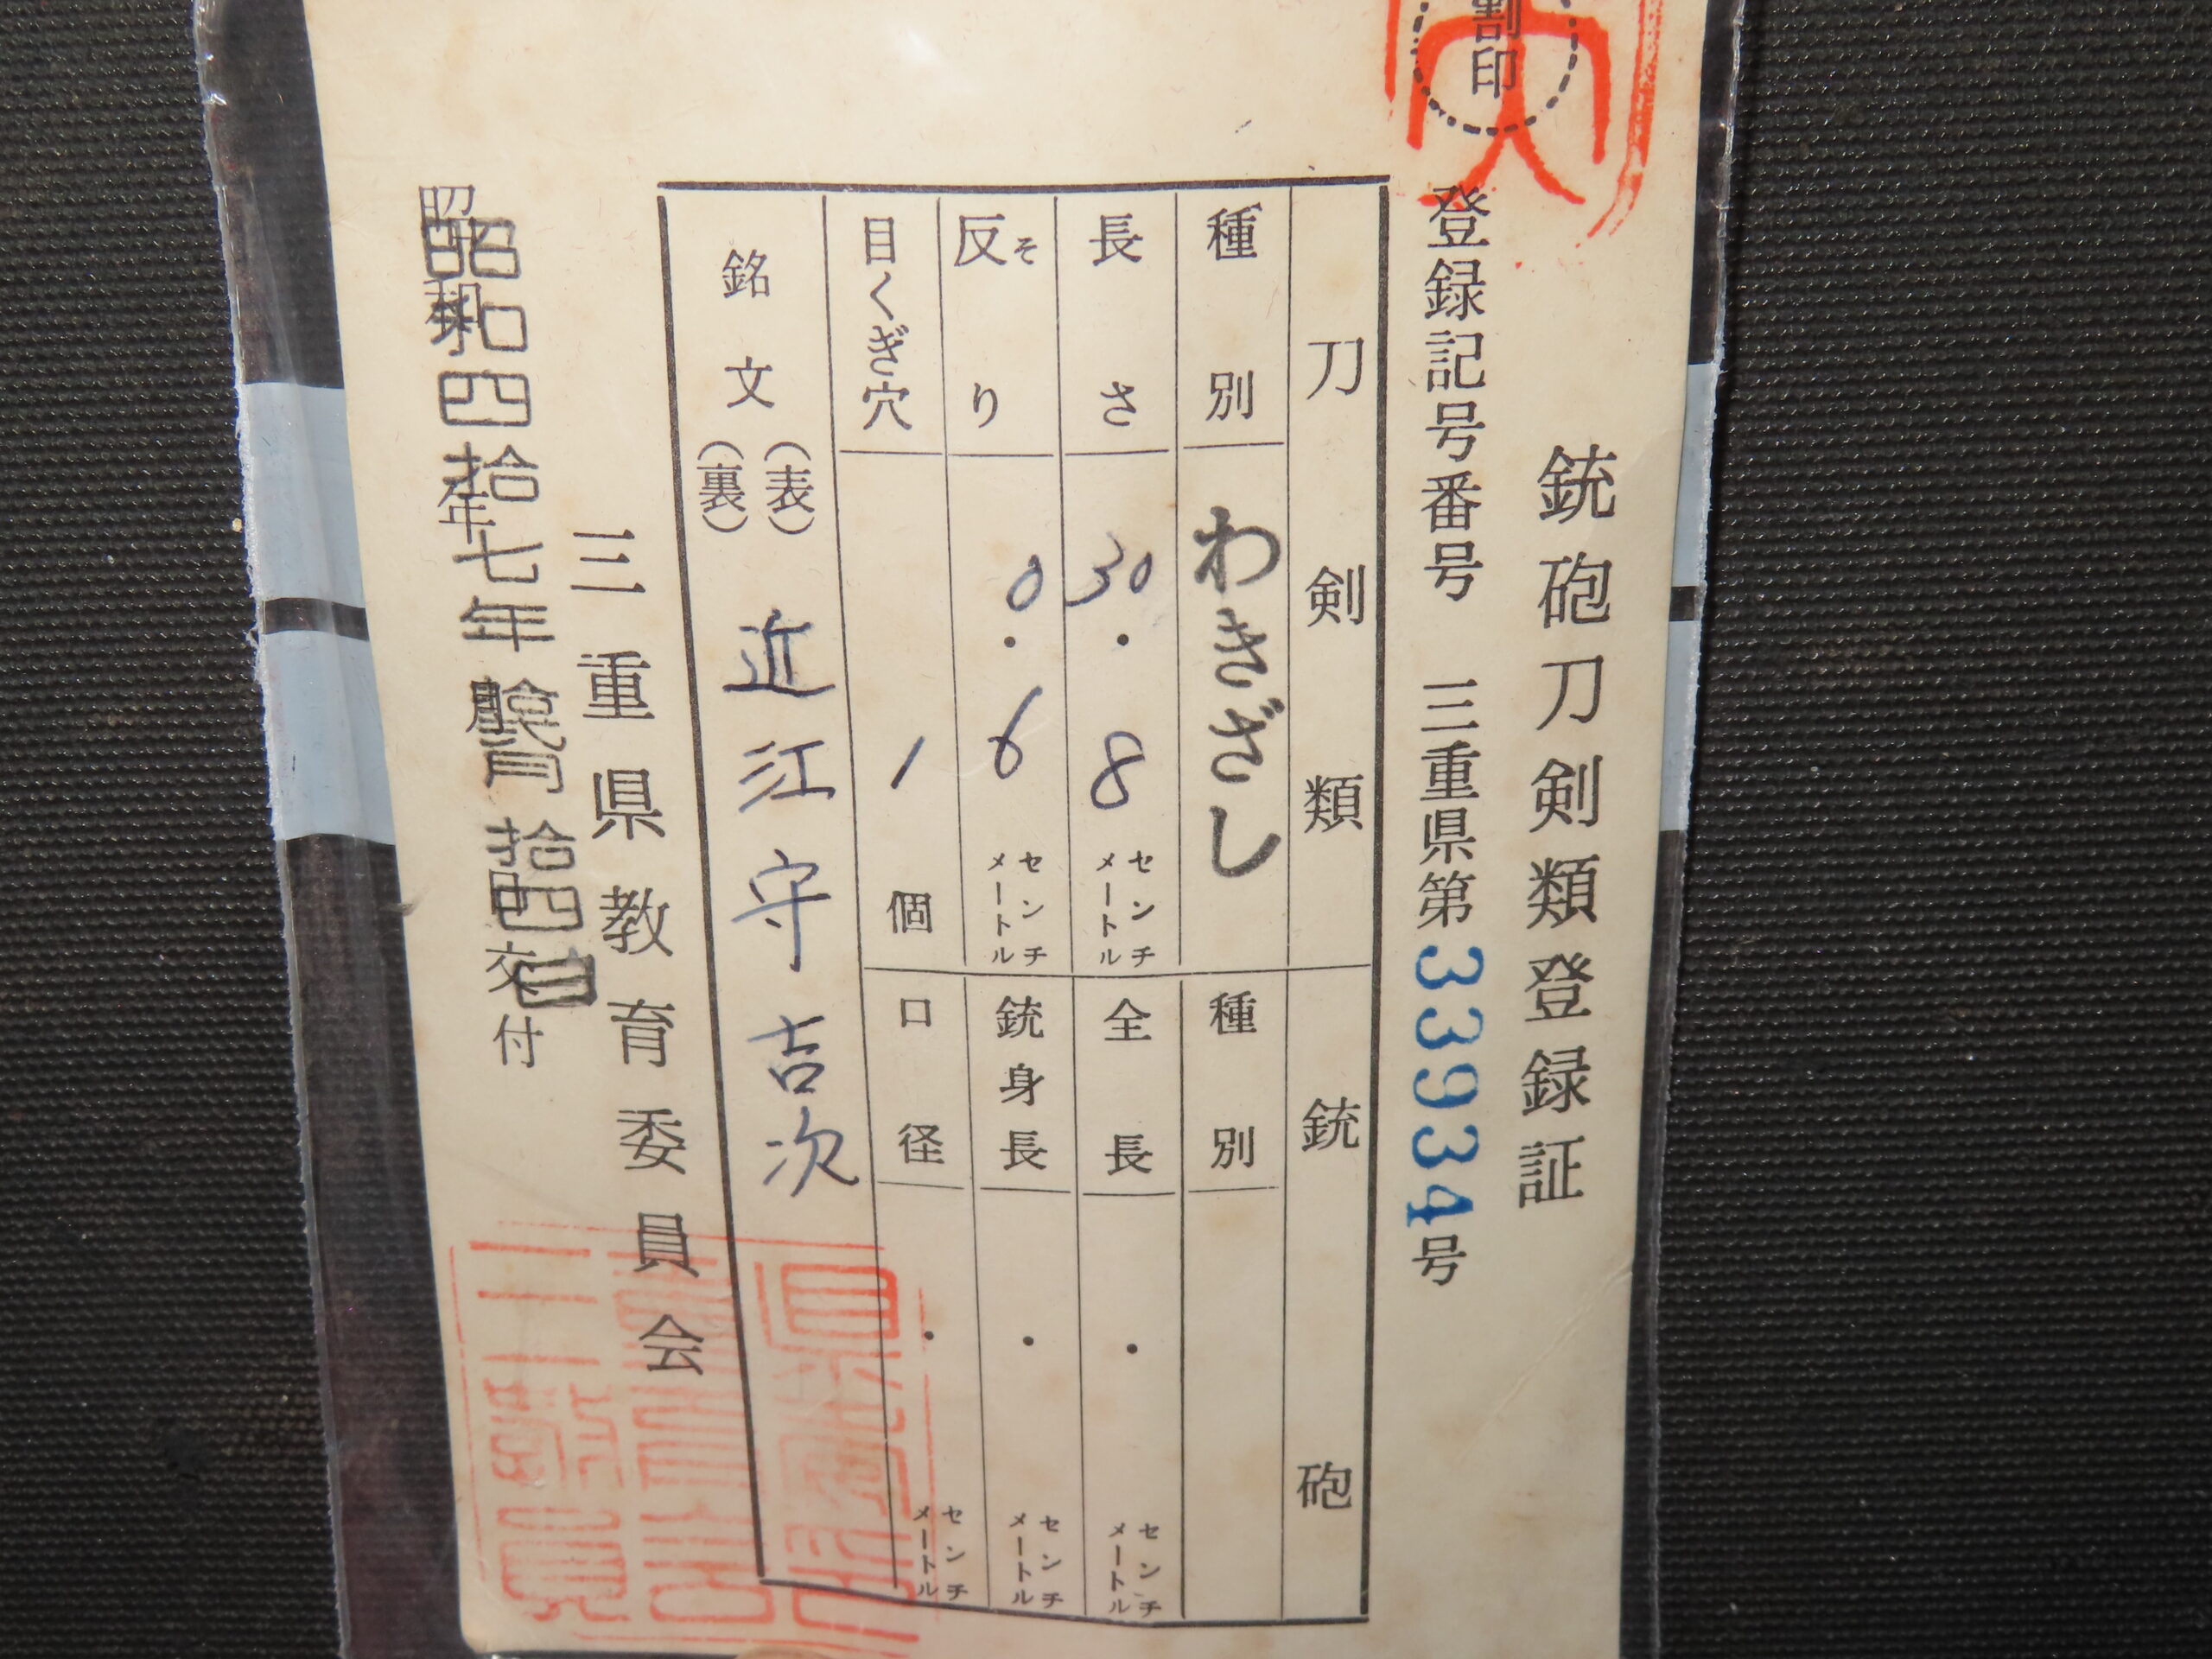 割印
銃砲刀剣類登録証
登録記号番号 三重県第33934号
刀剣類
銃砲
種別 わきざし
種別
長さ 30.8 センチメートル
全長 . センチメートル
反り そ 0.6 センチメートル
銃身長 . センチメートル
目くぎ穴 1 個
口径 . センチメートル
銘文 (表) 近江守吉次
(裏)
三重県教育委員会
昭和四拾七年 月拾四日
昭和 年 交付